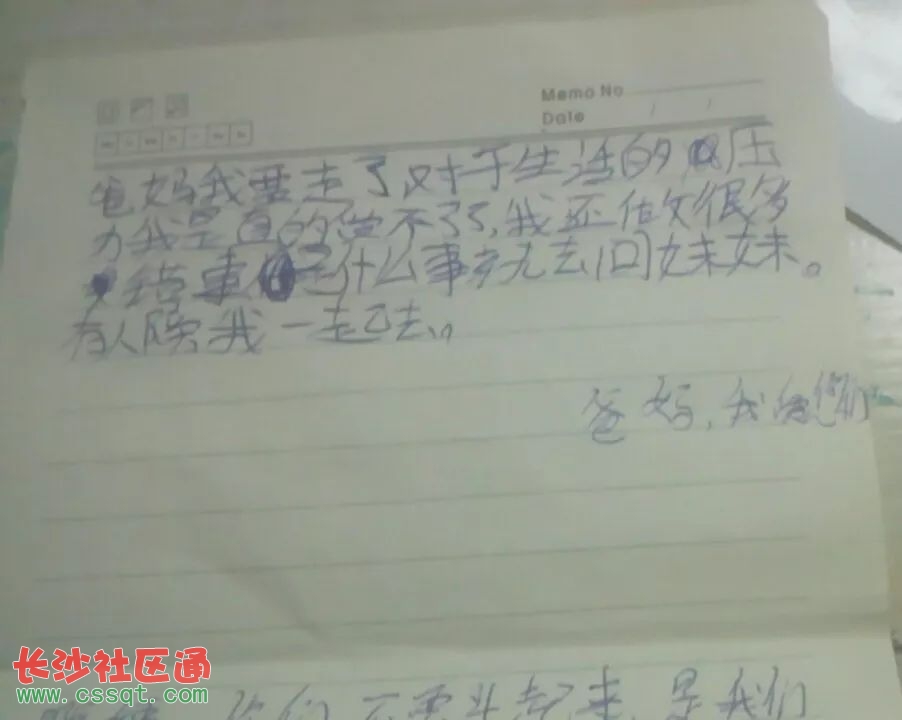 Memo No
Date / /
爸妈我要走了,对于生活的压
力我是真的受不了了,我还做很多
错事 是什么事就去问妹妹。
有人陪我一起去,,
爸妈,我 你们
你们不要 起来,是我们
长沙社区通
www.cssqt.com